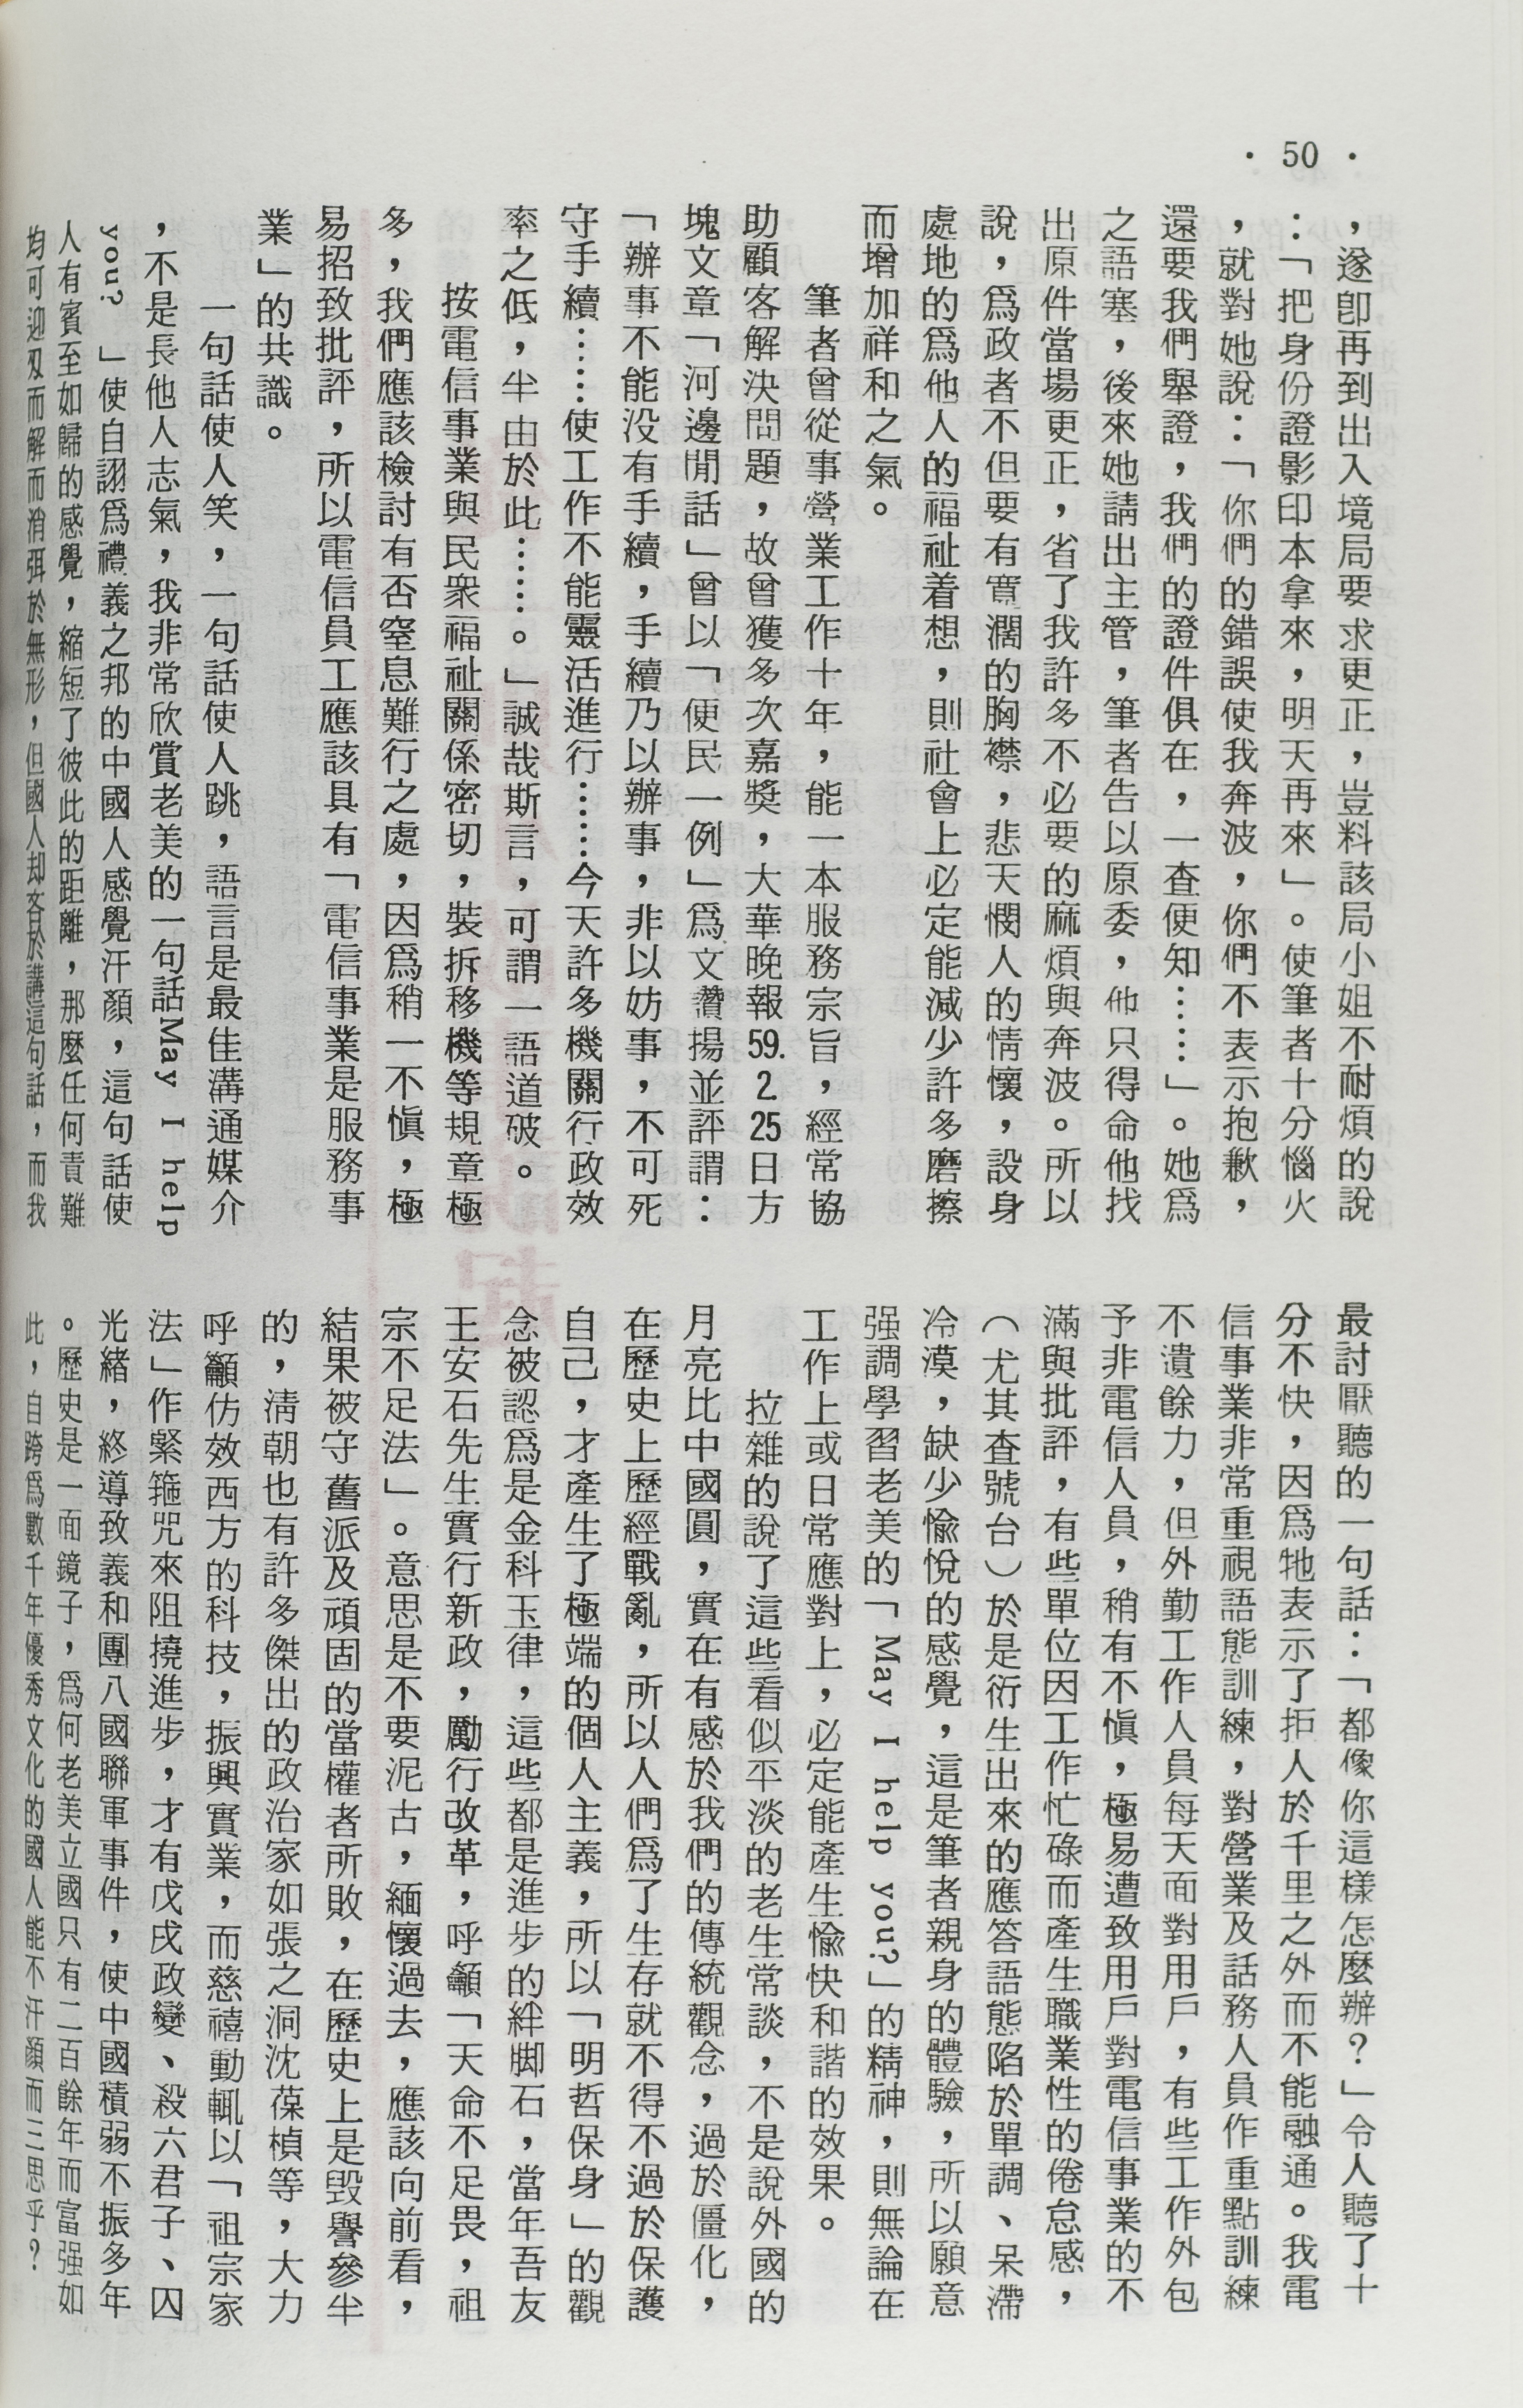 ・50・
，遂卽再到出入境局要求更正，豈料該局小姐不耐煩的說
：「把身份證影印本拿來，明天再來」。使筆者十分惱火
，就對她說：「你們的錯誤使我奔波，你們不表示抱歉，
還要我們舉證，我們的證件俱在，一查便知……」。她爲
之語塞，後來她請出主管，筆者告以原委，他只得命他找
出原件當場更正，省了我許多不必要的麻煩與奔波。所以
說，爲政者不但要有寬濶的胸襟，悲天憫人的情懷，設身
處地的爲他人的福祉着想，則社會上必定能減少許多磨擦
而增加祥和之氣。
筆者曾從事營業工作十年，能一本服務宗旨，經常協
助顧客解決問題，故曾獲多次嘉獎，大華晚報59.2.25日方
塊文章「河邊閒話」曾以「便民一例」爲文讚揚並評謂：
「辦事不能没有手續，手續乃以辦事，非以妨事，不可死
守手續……使工作不能靈活進行……今天許多機關行政效
率之低，半由於此……。」誠哉斯言，可謂一語道破。
按電信事業與民衆福祉關係密切，裝拆移機等規章極
多，我們應該檢討有否窒息難行之處，因爲稍一不愼，極
易招致批評，所以電信員工應該具有「電信事業是服務事
業」的共識。
一句話使人笑，一句話使人跳，語言是最佳溝通媒介
，不是長他人志氣，我非常欣賞老美的一句話May I help
you?」使自詡爲禮義之邦的中國人感覺汗顏，這句話使
人有賓至如歸的感覺，縮短了彼此的距離，那麼任何責難
均可迎刄而解而消弭於無形，但國人却吝於講這句話，而我
最討厭聽的一句話：「都像你這樣怎麼辦？」令人聽了十
分不快，因爲牠表示了拒人於千里之外而不能融通。我電
信事業非常重視語態訓練，對營業及話務人員作重點訓練
不遺餘力，但外勤工作人員每天面對用戶，有些工作外包
予非電信人員，稍有不愼，極易遭致用戶對電信事業的不
滿與批評，有些單位因工作忙碌而產生職業性的倦怠感，
（尤其查號台）於是衍生出來的應答語態陷於單調、呆滯
冷漠，缺少愉悅的感覺，這是筆者親身的體驗，所以願意
强調學習老美的「May I help you?」的精神，則無論在
工作上或日常應對上，必定能產生愉快和諧的效果。
拉雜的說了這些看似平淡的老生常談，不是說外國的
月亮比中國圓，實在有感於我們的傳統觀念，過於僵化，
在歷史上歷經戰亂，所以人們爲了生存就不得不過於保護
自己，才產生了極端的個人主義，所以「明哲保身」的觀
念被認爲是金科玉律，這些都是進步的絆脚石，當年吾友
王安石先生實行新政，勵行改革，呼籲「天命不足畏，祖
宗不足法」。意思是不要泥古，緬懷過去，應該向前看，
結果被守舊派及頑固的當權者所敗，在歷史上是毀譽參半
的，淸朝也有許多傑出的政治家如張之洞沈葆楨等，大力
呼籲仿效西方的科技，振興實業，而慈禧動輒以「祖宗家
法」作緊箍咒來阻撓進步，才有戊戌政變、殺六君子、囚
光緒，終導致義和團八國聯軍事件，使中國積弱不振多年
。歷史是一面鏡子，爲何老美立國只有二百餘年而富强如
此，自誇爲數千年優秀文化的國人能不汗顏而三思乎？